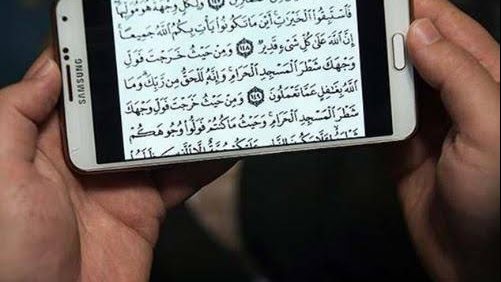 وَلِكُلٍّ وِجْهَةٌ هُوَ مُوَلِّيهَا
فَاسْتَبِقُوا الْخَيْرَاتِ أَيْنَ مَا تَكُونُوا يَأْتِ بِكُمُ اللَّهُ جَمِيعًا
إِنَّ اللَّهَ عَلَى كُلِّ شَيْءٍ قَدِيرٌ ١٤٨ وَمِنْ حَيْثُ خَرَجْتَ فَوَلِّ
وَجْهَكَ شَطْرَ الْمَسْجِدِ الْحَرَامِ وَإِنَّهُ لَلْحَقُّ مِن رَّبِّكَ وَمَا
اللَّهُ بِغَافِلٍ عَمَّا تَعْمَلُونَ ١٤٩ وَمِنْ حَيْثُ خَرَجْتَ فَوَلِّ وَجْهَكَ
شَطْرَ الْمَسْجِدِ الْحَرَامِ وَحَيْثُ مَا كُنتُمْ فَوَلُّوا وُجُوهَكُمْ
SAMSUNG